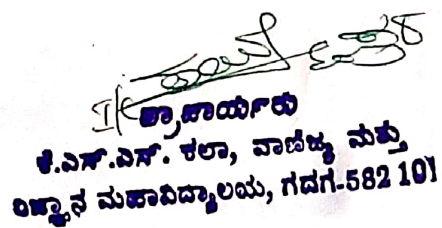 I/c
ಪ್ರಾಚಾರ್ಯರು
ಕೆ.ಎಸ್.ಎಸ್. ಕಲಾ, ವಾಣಿಜ್ಯ ಮತ್ತು
ವಿಜ್ಞಾನ ಮಹಾವಿದ್ಯಾಲಯ, ಗದಗ-582 101